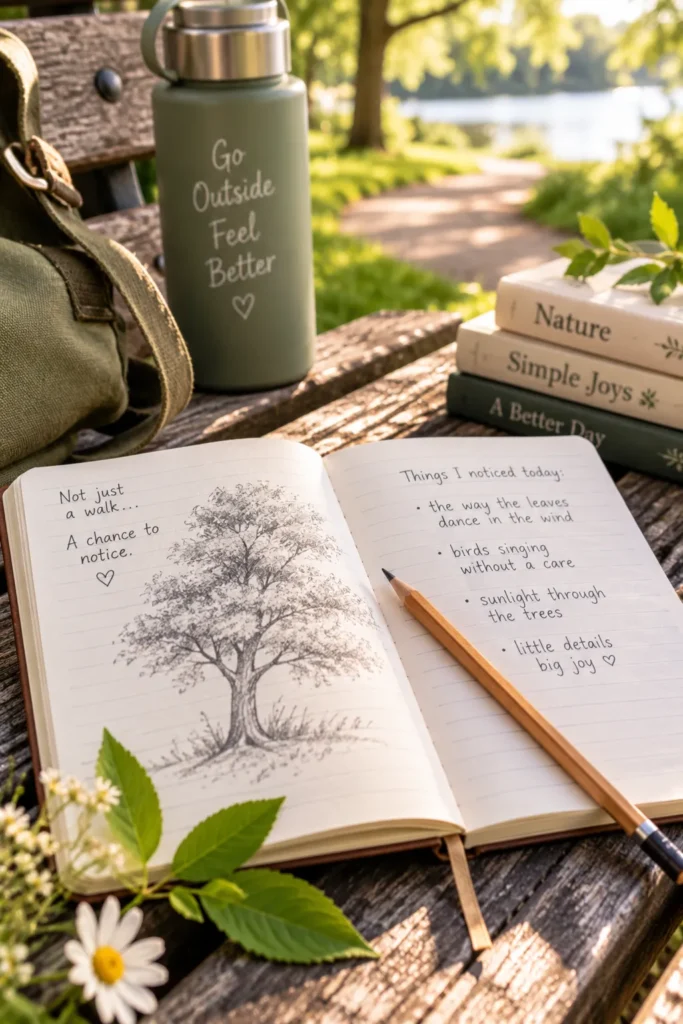 Go
Outside
Feel
Better
♡
Nature
Simple Joys
A Better Day
Not just
a walk...
A chance to
notice.
♡
Things I noticed today:
• the way the leaves
dance in the wind
• birds singing
without a care
• sunlight through
the trees
• little details
big joy ♡